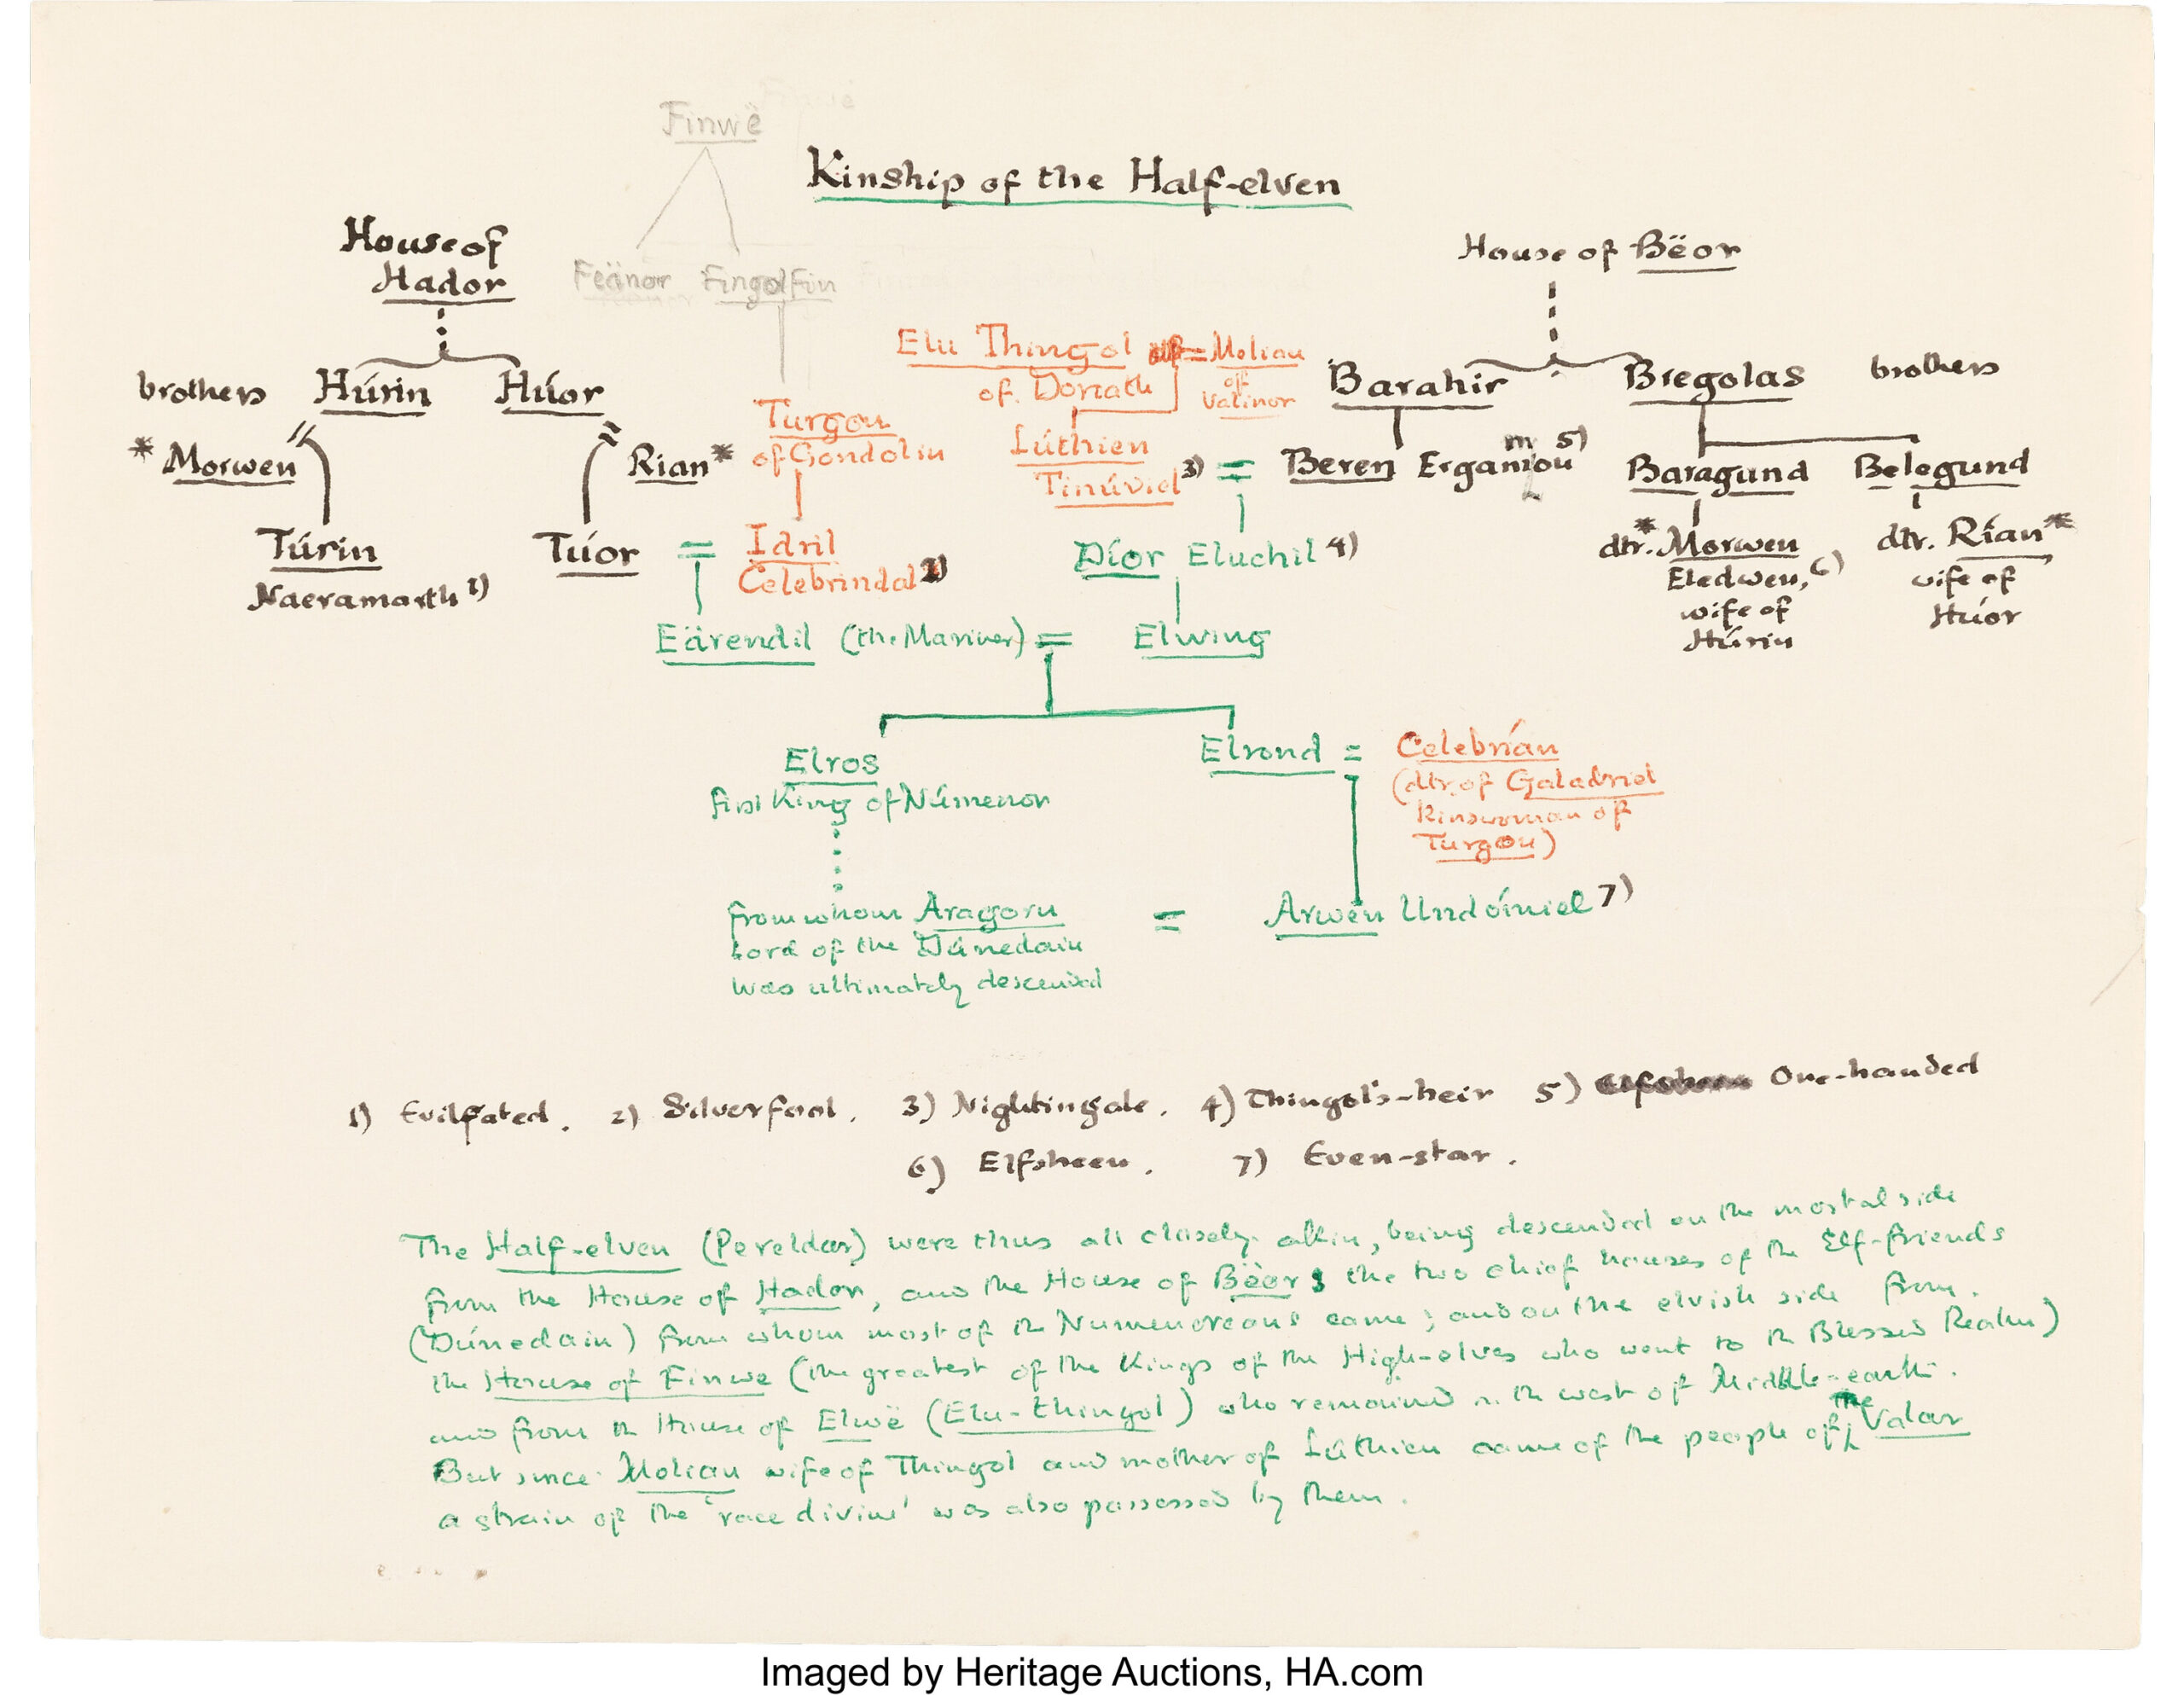 Finwë
Kinship of the Half-elven
House of
Hador
House of Bëor
Feänor Fingolfin
Elu Thingol = Melian
of Doriath
of
Valinor
brothers Húrin Húor
Barahir Bregolas brothers
Turgon
of Gondolin
* Morwen
Rían*
Lúthien
Tinúviel 3) = Beren Ergamion 5)
m
Baragund Belegund
Túrin
Naeramarth 1)
Túor = Idril
Celebrindal 2)
Díor Eluchil 4)
dtr. *Morwen
Eledwen, 6)
wife of
Húrin
dtr. Rían*
wife of
Húor
Eärendil (the Mariner) = Elwing
Elros
first King of Númenor
Elrond = Celebrían
(dtr. of Galadriel
Kinswoman of
Turgon)
from whom Aragorn
Lord of the Dúnedain
was ultimately descended
= Arwen Undómiel 7)
1) Evilfated. 2) Silverfoot. 3) Nightingale. 4) Thingol's-heir 5) Elfsheen One-handed
6) Elfsheen. 7) Even-star.
The Half-elven (Pereldar) were thus all closely akin, being descended on the mortal side
from the House of Hador, and the House of Bëor, the two chief houses of the Elf-friends
(Dúnedain) from whom most of the Numenoreans came; and on the elvish side from
the House of Finwe (the greatest of the Kings of the High-elves who went to the Blessed Realm)
and from the House of Elwë (Elu-thingol) who remained in the west of Middle-earth.
But since Melian wife of Thingol and mother of Lúthien came of the people of the Valar
a strain of the 'race divine' was also possessed by them.
Imaged by Heritage Auctions, HA.com